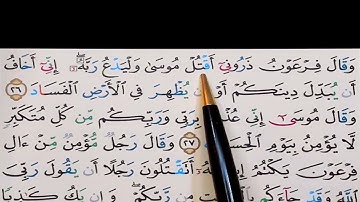 وَقَالَ فِرْعَوْنُ ذَرُونِىٓ أَقْتُلْ مُوسَىٰ وَلْيَدْعُ رَبَّهُۥٓ ۖ إِنِّىٓ أَخَافُ
أَن يُبَدِّلَ دِينَكُمْ أَوْ أَن يُظْهِرَ فِى ٱلْأَرْضِ ٱلْفَسَادَ ٢٦
وَقَالَ مُوسَىٰٓ إِنِّى عُذْتُ بِرَبِّى وَرَبِّكُم مِّن كُلِّ مُتَكَبِّرٍ
لَّا يُؤْمِنُ بِيَوْمِ ٱلْحِسَابِ ٢٧ وَقَالَ رَجُلٌ مُّؤْمِنٌ مِّنْ ءَالِ
فِرْعَوْنَ يَكْتُمُ إِيمَٰنَهُۥٓ أَتَقْتُلُونَ رَجُلًا أَن يَقُولَ رَبِّىَ
ٱللَّهُ وَقَدْ جَآءَكُم بِٱلْبَيِّنَٰتِ مِن رَّبِّكُمْ ۖ وَإِن يَكُ كَٰذِبًا